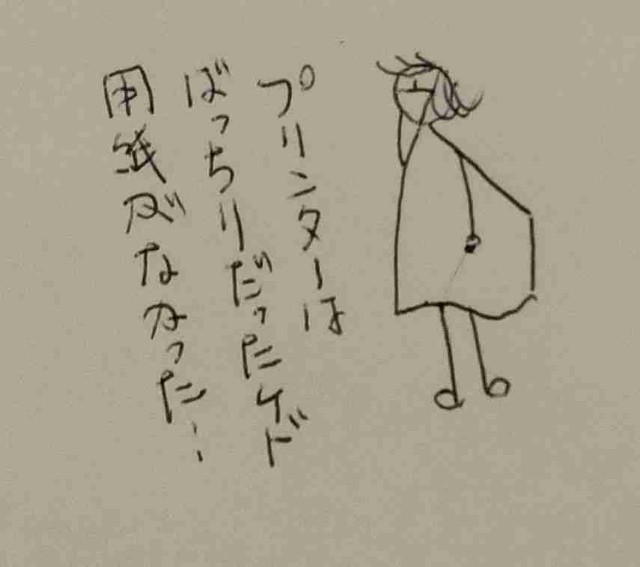 プリンターは
ばっちりだったケド
用紙がなかった…